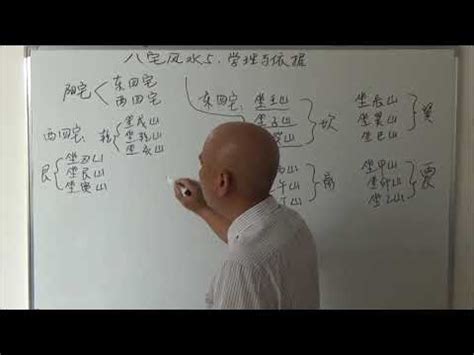 八宅风水5.学理与依据
阳宅 东四宅
西四宅
东四宅: 坐壬山
坐子山
山 坎
坐辰山
坐巽山
坐巳山 巽
西四宅: 乾 坐戌山
坐乾山
坐亥山
艮 坐丑山
坐艮山
坐寅山
山
午山
山 离
坐甲山
坐卯山
坐乙山 震